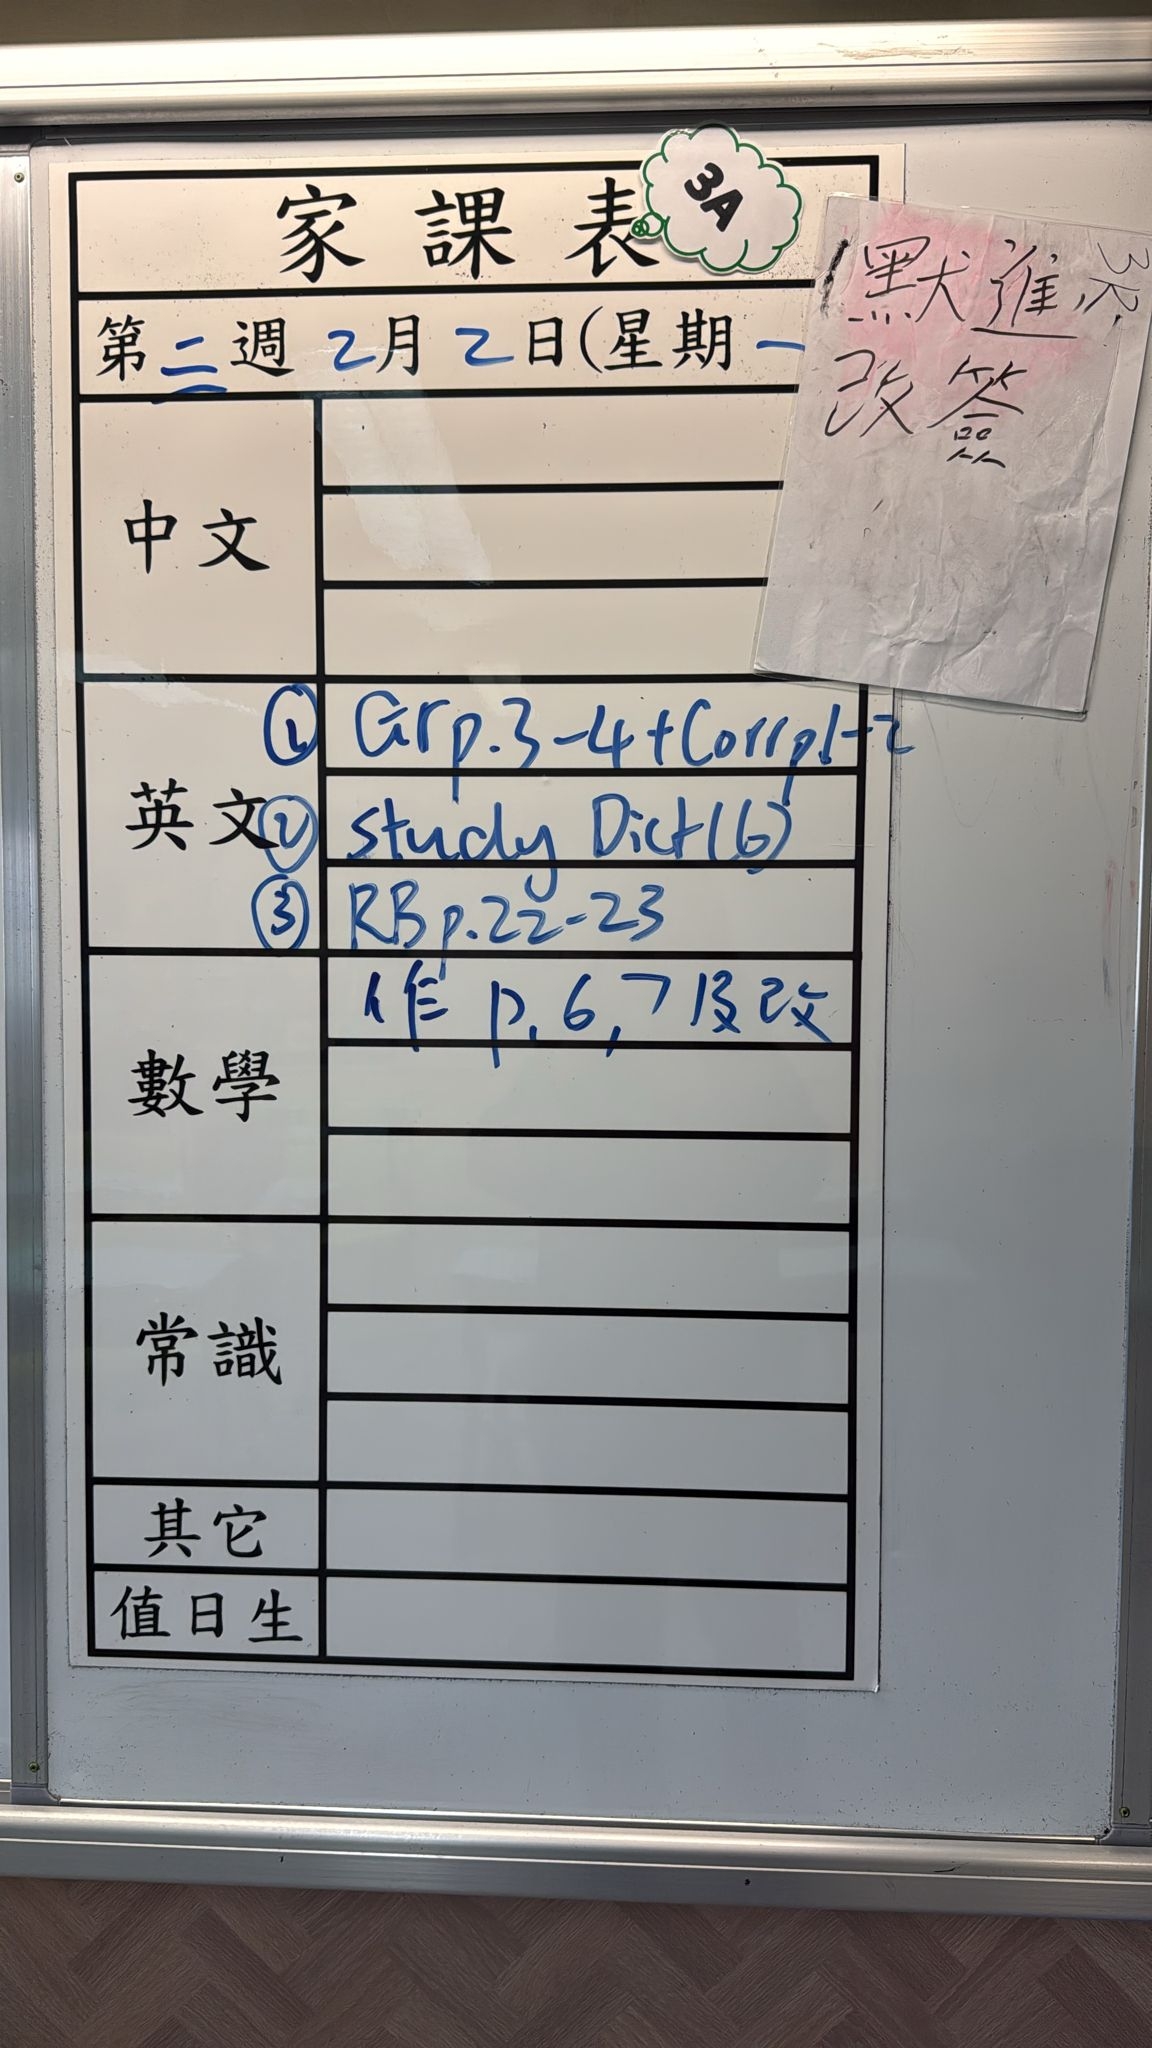 家課表
3A
第二週 2月2日(星期一
默進
改簽
中文
英文
① Gr p.3-4+Corr p.1-2
② study Dict(6)
③ RB p.22-23
數學
作 p.6,7及改
常識
其它
值日生